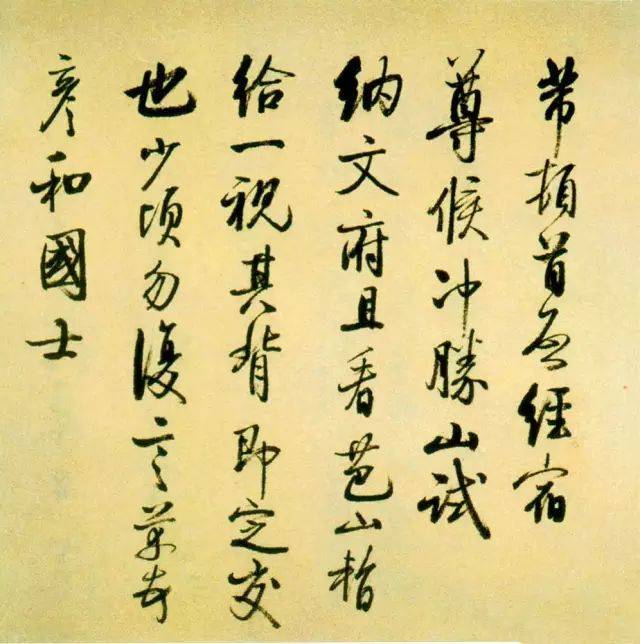 芾頓首啓經宿
尊候冲勝山試
納文府且看芭山暫
給一視其背即定交
也少頃勿復言芾頓首
彥和國士